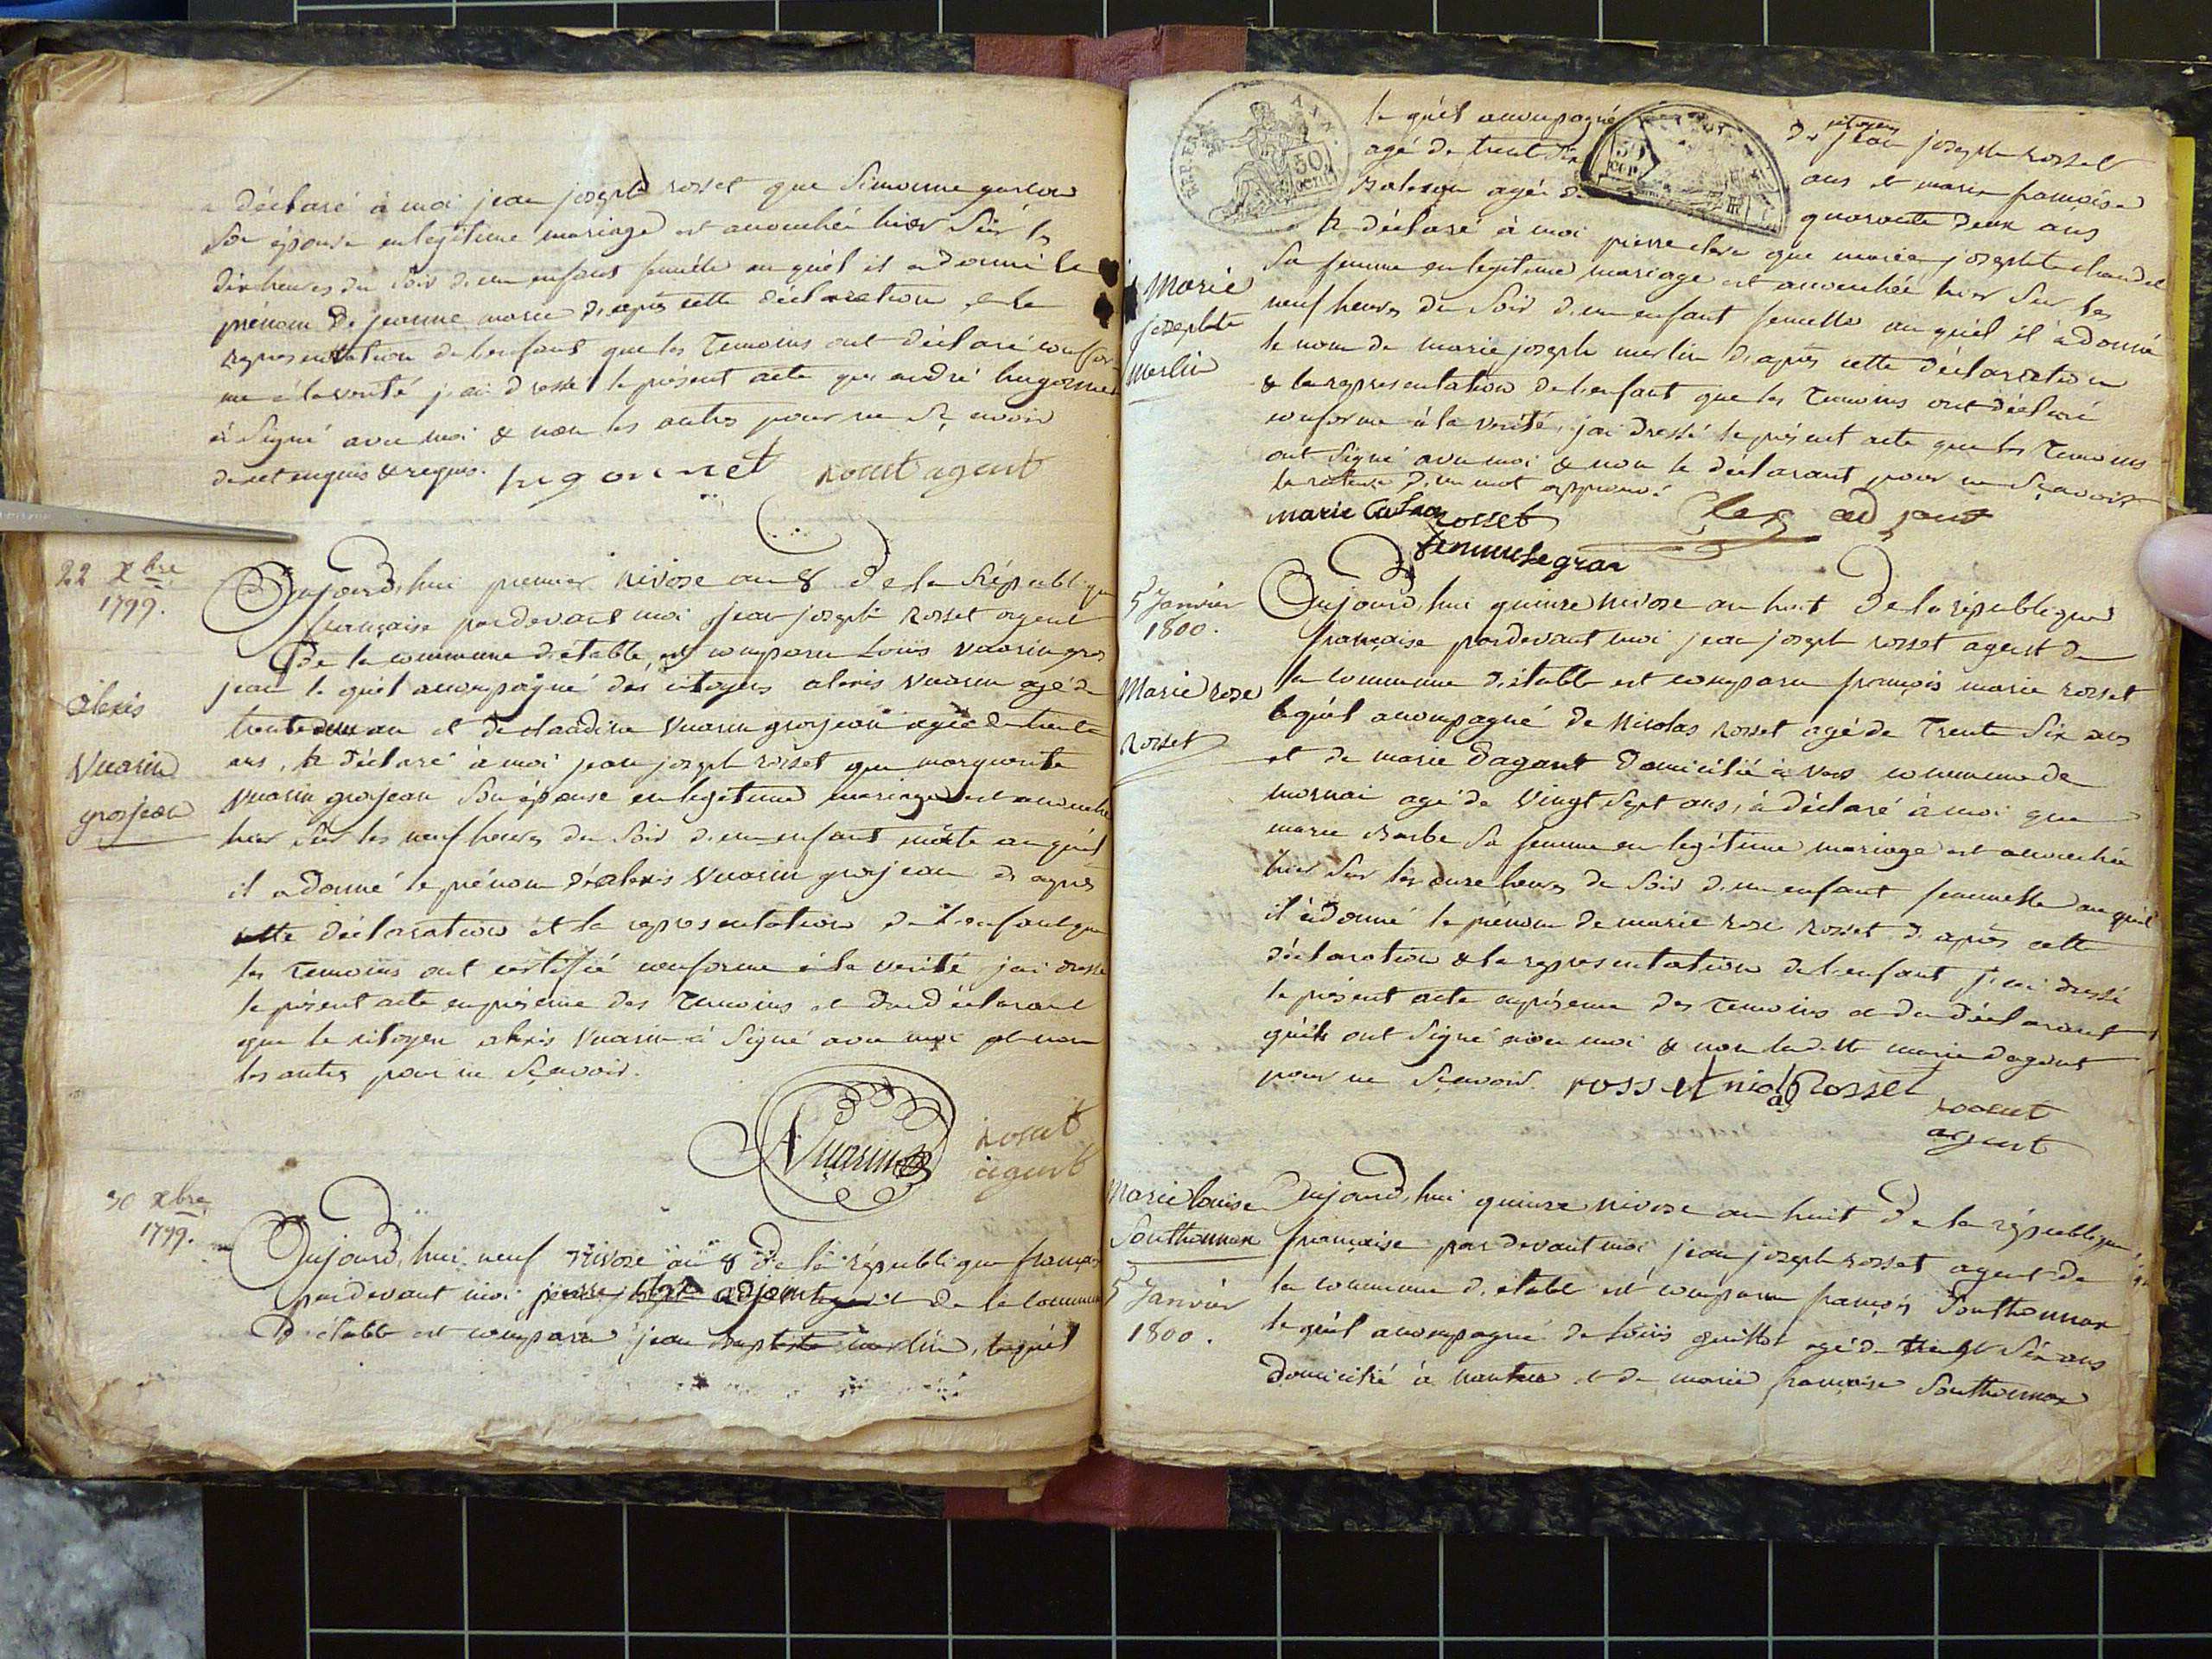 a déclaré à moi jean joseph rosset que Simonne
Son épouse en legitime mariage est accouchée hier Sur les
dix heures du Soir d'un enfant femelle au quel il a donné le
prénom de jeanne marie d'après cette déclaration et la
representation de l'enfant que les Temoins ont déclaré confor
me à la verité j'ai dressé le présent acte que andré hugonnet
à Signé avec moi & non les autres pour ne Sçavoir
de ce enquis & requis. hugonnet Rosset agent
22 Xbre
1799.
Aujourd'hui premier nivose an 8 de la République
française pardevant moi jean joseph Rosset agent
de la commune d'étable, est comparu Louis Vuarin gros
jean le quel accompagné des citoyens alexis Vuarin agé de
trente un an et de claudine Vuarin grosjean agée de trente
alexis
Vuarin
grosjean
ans, à déclaré à moi jean joseph rosset que marguerite
Vuarin grosjean Son épouse en legitime mariage est accouchée
hier Sur les neuf heures du Soir d'un enfant mâle au quel
il a donné le prénom d'alexis Vuarin grosjean d'après
cette déclaration et la representation de l'enfant que
les Temoins ont certifié conforme à la verité j'ai dressé
le présent acte en présence des Temoins et du déclarant
que le citoyen alexis Vuarin à Signé avec moi et non
les autres pour ne Sçavoir.
A Vuarin Rosset
agent
30 Xbre
1799.
Aujourd'hui neuf nivose an 8 de la république française
pardevant moi pierre clerc adjoint de la commune
d'étable est comparu jean baptiste merlin, lequel
REP. FRA. 50 cent
le quel accompagné des citoyens jean joseph rosset
agé de trente Six ans et marie françoise
agée de quarante deux ans
Marie
josephte
Merlin
à déclaré à moi pierre clerc que marie josephte
Sa femme en legitime mariage est accouchée hier Sur les
neuf heures du Soir d'un enfant femelle au quel il à donné
le nom de marie joseph merlin d'après cette déclaration
& la representation de l'enfant que les Temoins ont déclaré
conforme à la verité, j'ai dressé le présent acte que les Temoins
ont Signé avec moi & non le déclarant pour ne Sçavoir
la rature d'un mot approuvé.
marie Rosset Clerc adjoint
femme legran
5 Janvier
1800.
Marie rose
Rosset
Aujourd'hui quinze nivose an huit de la république
française pardevant moi jean joseph rosset agent de
la commune d'étable est comparu françois marie rosset
lequel accompagné de Nicolas rosset agé de Trente Six ans
et de marie dagant domicilié à Vers commune de
mornai agé de Vingt Sept ans, à déclaré à moi que
marie Barbe Sa femme en legitime mariage est accouchée
hier Sur les onze heures du Soir d'un enfant femmelle au quel
il à donné le prénom de marie rose rosset d'après cette
déclaration & la representation de l'enfant, j'ai dressé
le présent acte en présence des Temoins et du déclarant
qu'ils ont Signé avec moi & non ladite marie dagant
pour ne Sçavoir. rosset nicolas Rosset
Rosset
agent
Marie louise
Sonthonnax
5 Janvier
1800.
Aujourd'hui quinze nivose an huit de la république
française pardevant moi jean joseph rosset agent de
la commune d'étable est comparu françois Sonthonnax
le quel accompagné de Louis guillot agé de Six ans
domicilié à nantua et de marie françoise Sonthonnax